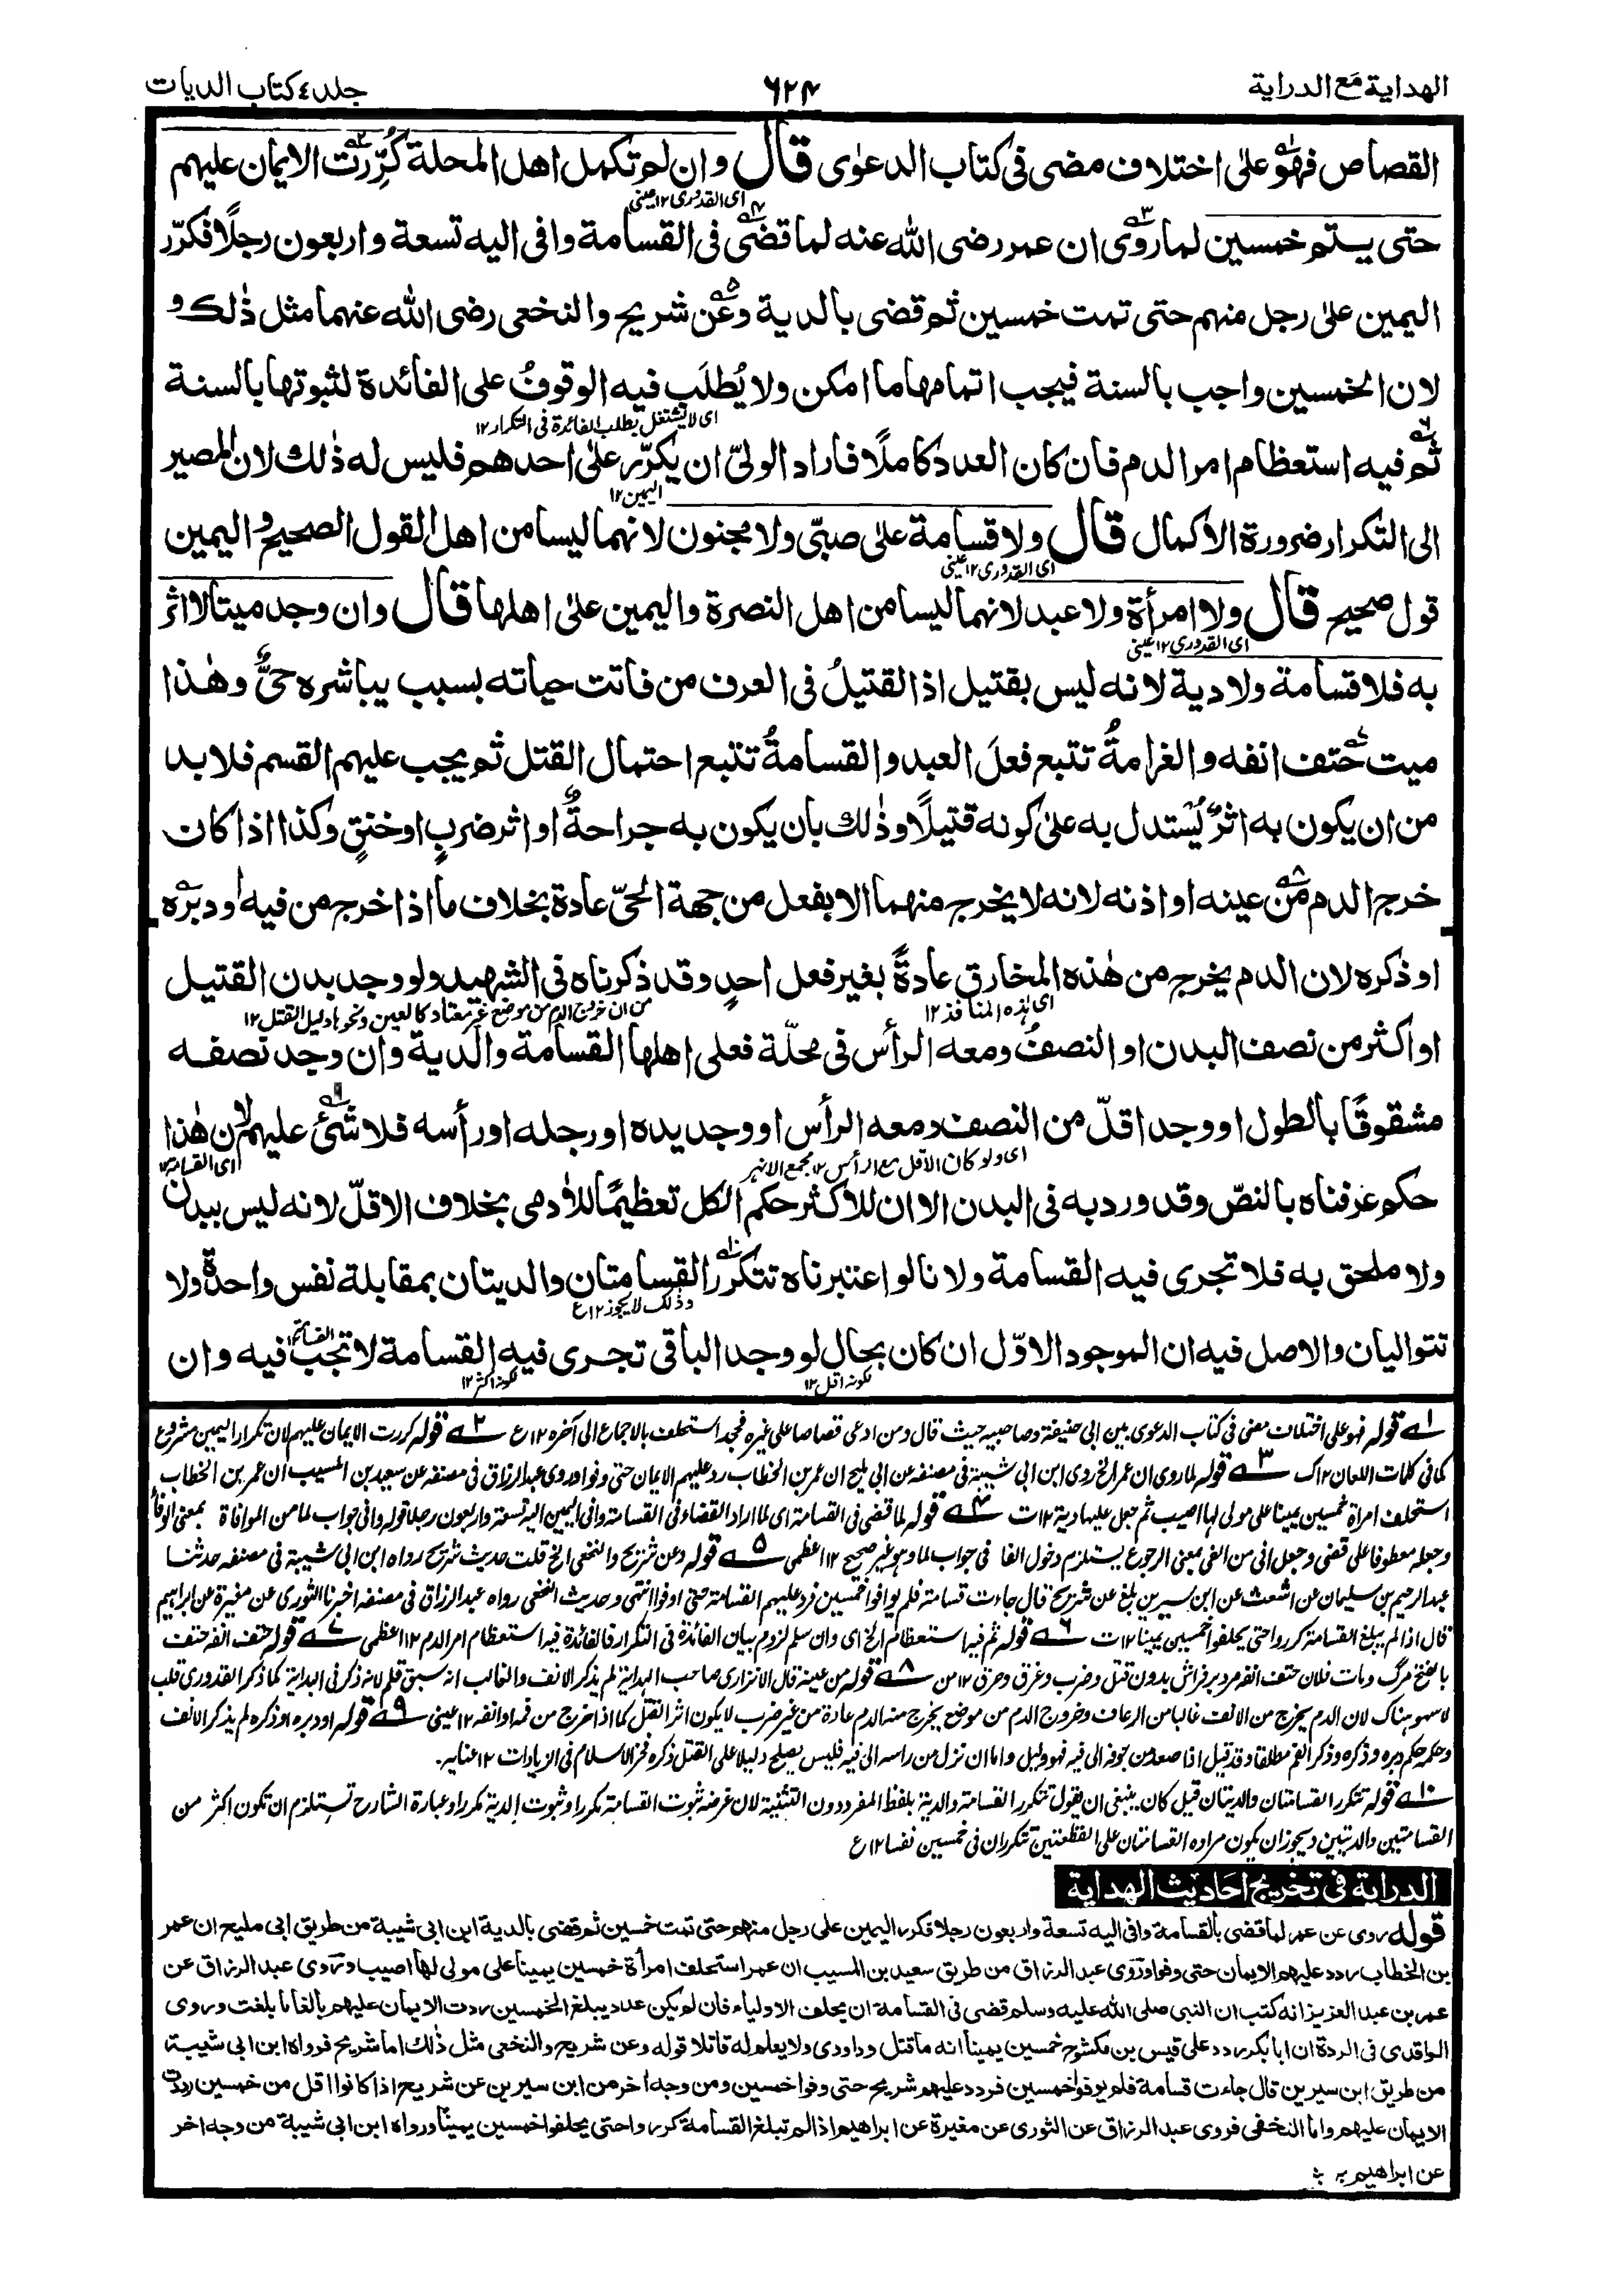 الهداية مع الدراية
۶۲۴
جلد ٤ كتاب الديات
القصاص فهو على اختلاف مضى فى كتاب الدعوى قال وان لم تكمل اهل المحلة كُرِّرت الايمان عليهم
اى القدورى ۱۲ عينى
حتى يستتم خمسين لما روى ان عمر رضى الله عنه لما قضى فى القسامة وافى اليه تسعة واربعون رجلًا فكرّر
اليمين على رجل منهم حتى تمت خمسين ثم قضى بالدية وعن شريح والنخعى رضى الله عنهما مثل ذلك و
لان الخمسين واجب بالسنة فيجب اتمامها ما امكن ولا يُطلَب فيه الوقوفُ على الفائدة لثبوتها بالسنة
اى لا يشتغل بطلب الفائدة فى التكرار ۱۲
ثم فيه استعظام امر الدم فان كان العدد كاملًا فاراد الولىّ ان يكرّر على احدهم فليس له ذلك لان المصير
اليمين ۱۲
الى التكرار ضرورة الاكمال قال ولا قسامة على صبىّ ولا مجنون لانهما ليسا من اهل القول الصحيح واليمين
اى القدورى ۱۲ عينى
قول صحيح قال ولا امرأة ولا عبد لانهما ليسا من اهل النصرة واليمين على اهلها قال وان وجد ميتا لا اثر
اى القدورى ۱۲ عينى
به فلا قسامة ولا دية لانه ليس بقتيل اذ القتيلُ فى العرف من فاتت حياته بسبب يباشره حىٌّ وهذا
ميت حتف انفه والغرامةُ تتبع فعلَ العبد والقسامةُ تتبع احتمال القتل ثم يجب عليهم القسم فلا بد
من ان يكون به اثرٌ يُستدل به على كونه قتيلًا وذلك بأن يكون به جراحةٌ او اثر ضربٍ او خنقٍ وكذا اذا كان
خرج الدم من عينه او اذنه لانه لا يخرج منهما الا بفعل من جهة الحىّ عادة بخلاف ما اذا خرج من فيه او دبره
او ذكره لان الدم يخرج من هذه المخارق عادةً بغير فعل احدٍ وقد ذكرناه فى الشهيد ولو وجد بدن القتيل
اى هذه المنافذ ۱۲
من ان خروج الدم من موضع غير معتاد كالعين ونحوها دليل القتل ۱۲
او اكثر من نصف البدن او النصفُ ومعه الرأس فى محلّة فعلى اهلها القسامة والدية وان وجد نصفه
مشقوقًا بالطول او وجد اقلّ من النصف ومعه الرأس او وجد يده او رجله او رأسه فلا شئ عليهم لان هذا
اى ولو كان الاقل مع الرأس ۱۲ مجمع الانهر
اى القسامة ۱۲
حكم عرفناه بالنصّ وقد ورد به فى البدن الا ان للاكثر حكم الكل تعظيمًا للآدمى بخلاف الاقلّ لانه ليس ببدن
ولا ملحق به فلا تجرى فيه القسامة ولانا لو اعتبرناه تتكرر القسامتان والديتان بمقابلة نفس واحدة ولا
وذلك لا يجوز ۱۲ ع
تتواليان والاصل فيه ان الموجود الاوّل ان كان بحال لو وجد الباقى تجرى فيه القسامة لا تجب فيه وان
لكونه اقل ۱۲
لكونه اكثر ۱۲
۱ قوله فهو على اختلاف مضى فى كتاب الدعوى بين ابى حنيفة وصاحبيه حيث قال ومن ادعى قصاصا على غيره فجحد استحلف بالاجماع الى آخره ۱۲ ع ۲ قوله كررت الايمان عليهم لان تكرار اليمين مشروع
كما فى كلمات اللعان ۱۲ ك ۳ قوله لما روى ان عمر الخ روى ابن ابى شيبة فى مصنفه عن ابى مليح ان عمر بن الخطاب رد عليهم الايمان حتى وفوا وروى عبد الرزاق فى مصنفه عن سعيد بن المسيب ان عمر بن الخطاب
استحلف امرأة خمسين يمينا على مولى لها اصيب ثم جعل عليها دية ۱۲ ت ۴ قوله لما قضى فى القسامة اى لما اراد القضاء فى القسامة وافى اليمين اليه تسعة واربعون رجلا قوله وافى جواب لما من الموافاة بمعنى الوفاء
وجعله معطوفا على قضى وجعل انى من الفئ بمعنى الرجوع يستلزم دخول الفا فى جواب لما وهو غير صحيح ۱۲ اعظمى ۵ قوله وعن شريح والنخعى الخ قلت حديث شريح رواه ابن ابى شيبة فى مصنفه حدثنا
عبد الرحيم بن سليمان عن اشعث عن ابن سيرين بلغ عن شريح قال جاءت قسامة فلم يوافوا خمسين فرد عليهم القسامة حتى اوفوا انتهى وحديث النخعى رواه عبد الرزاق فى مصنفه اخبرنا الثورى عن مغيرة عن ابراهيم
قال اذا لم يبلغ القسامة كرروا حتى يحلفوا خمسين يمينا ۱۲ ت ۶ قوله ثم فيه استعظام الخ اى وان سلم لزوم بيان الفائدة فى التكرار فالفائدة فيه استعظام امر الدم ۱۲ اعظمى ۷ قوله حتف انفه حتف
بالفتح مرگ ومات فلان حتف انفه مرد بر فراش بدون قتل وضرب وغرق وحرق ۱۲ من ۸ قوله من عينه قال الاترازى صاحب الهداية لم يذكر الانف والغالب انه سبق قلم لانه ذكر فى البداية كما ذكر القدورى قلت
لا سهو هناك لان الدم يخرج من الانف غالبا من الرعاف وخروج الدم من موضع يخرج منه الدم عادة من غير ضرب لا يكون اثر القتل كما اذا خرج من فمه او انفه ۱۲ عينى ۹ قوله او دبره او ذكره لم يذكر الانف
وحكمه حكم دبره وذكره وذكر الفم مطلقا وقد قيل اذا صعد من جوفه الى فيه فهو دليل واما ان نزل من رأسه الى فيه فليس يصلح دليلا على القتل ذكره فخر الاسلام فى الزيادات ۱۲ عنايه.
۱۰ قوله تتكرر القسامتان والديتان قيل كان ينبغى ان يقول تتكرر القسامة والدية بلفظ المفرد دون التثنية لان غرضه ثبوت القسامة مكررا وثبوت الدية مكررا وعبارة الشارح تستلزم ان تكون اكثر من
القسامتين والديتين ويجوز ان يكون مراده القسامتان على القطعتين تتكرران فى خمسين نفسا ۱۲ ع
الدراية فى تخريج احاديث الهداية
قوله روى عن عمر لما قضى بالقسامة وافى اليه تسعة واربعون رجلا فكرر اليمين على رجل منهم حتى تمت خمسين ثم قضى بالدية ابن ابى شيبة من طريق ابى مليح ان عمر
بن الخطاب ردد عليهم الايمان حتى وفوا وروى عبد الرزاق من طريق سعيد بن المسيب ان عمر استحلف امرأة خمسين يمينا على مولى لها اصيب وروى عبد الرزاق عن
عمر بن عبد العزيز انه كتب ان النبى صلى الله عليه وسلم قضى فى القسامة ان يحلف الاولياء فان لم يكن عدد يبلغ الخمسين ردت الايمان عليهم بالغا ما بلغت وروى
الواقدى فى الردة ان ابا بكر ردد على قيس بن مكشوح خمسين يمينا انه ما قتل دادوى ولا يعلم له قاتلا قوله وعن شريح والنخعى مثل ذلك اما شريح فرواه ابن ابى شيبة
من طريق ابن سيرين قال جاءت قسامة فلم يوفوا خمسين فردد عليهم شريح حتى وفوا خمسين ومن وجه اخر من ابن سيرين عن شريح اذا كانوا اقل من خمسين رددت
الايمان عليهم واما النخعى فروى عبد الرزاق عن الثورى عن مغيرة عن ابراهيم اذا لم تبلغ القسامة كرروا حتى يحلفوا خمسين يمينا ورواه ابن ابى شيبة من وجه اخر
عن ابراهيم